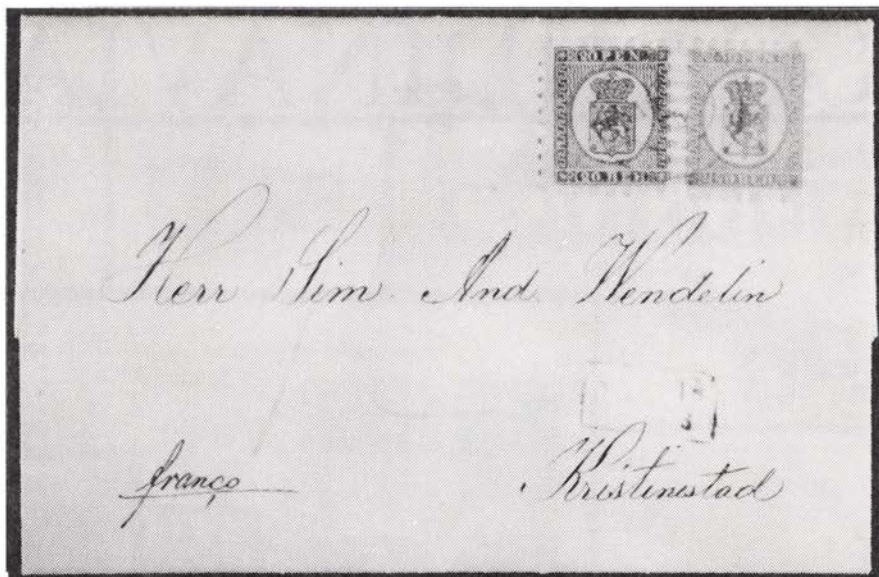 8 PEN.
Herr Sim. And. Wendelin
franco
Kristinestad